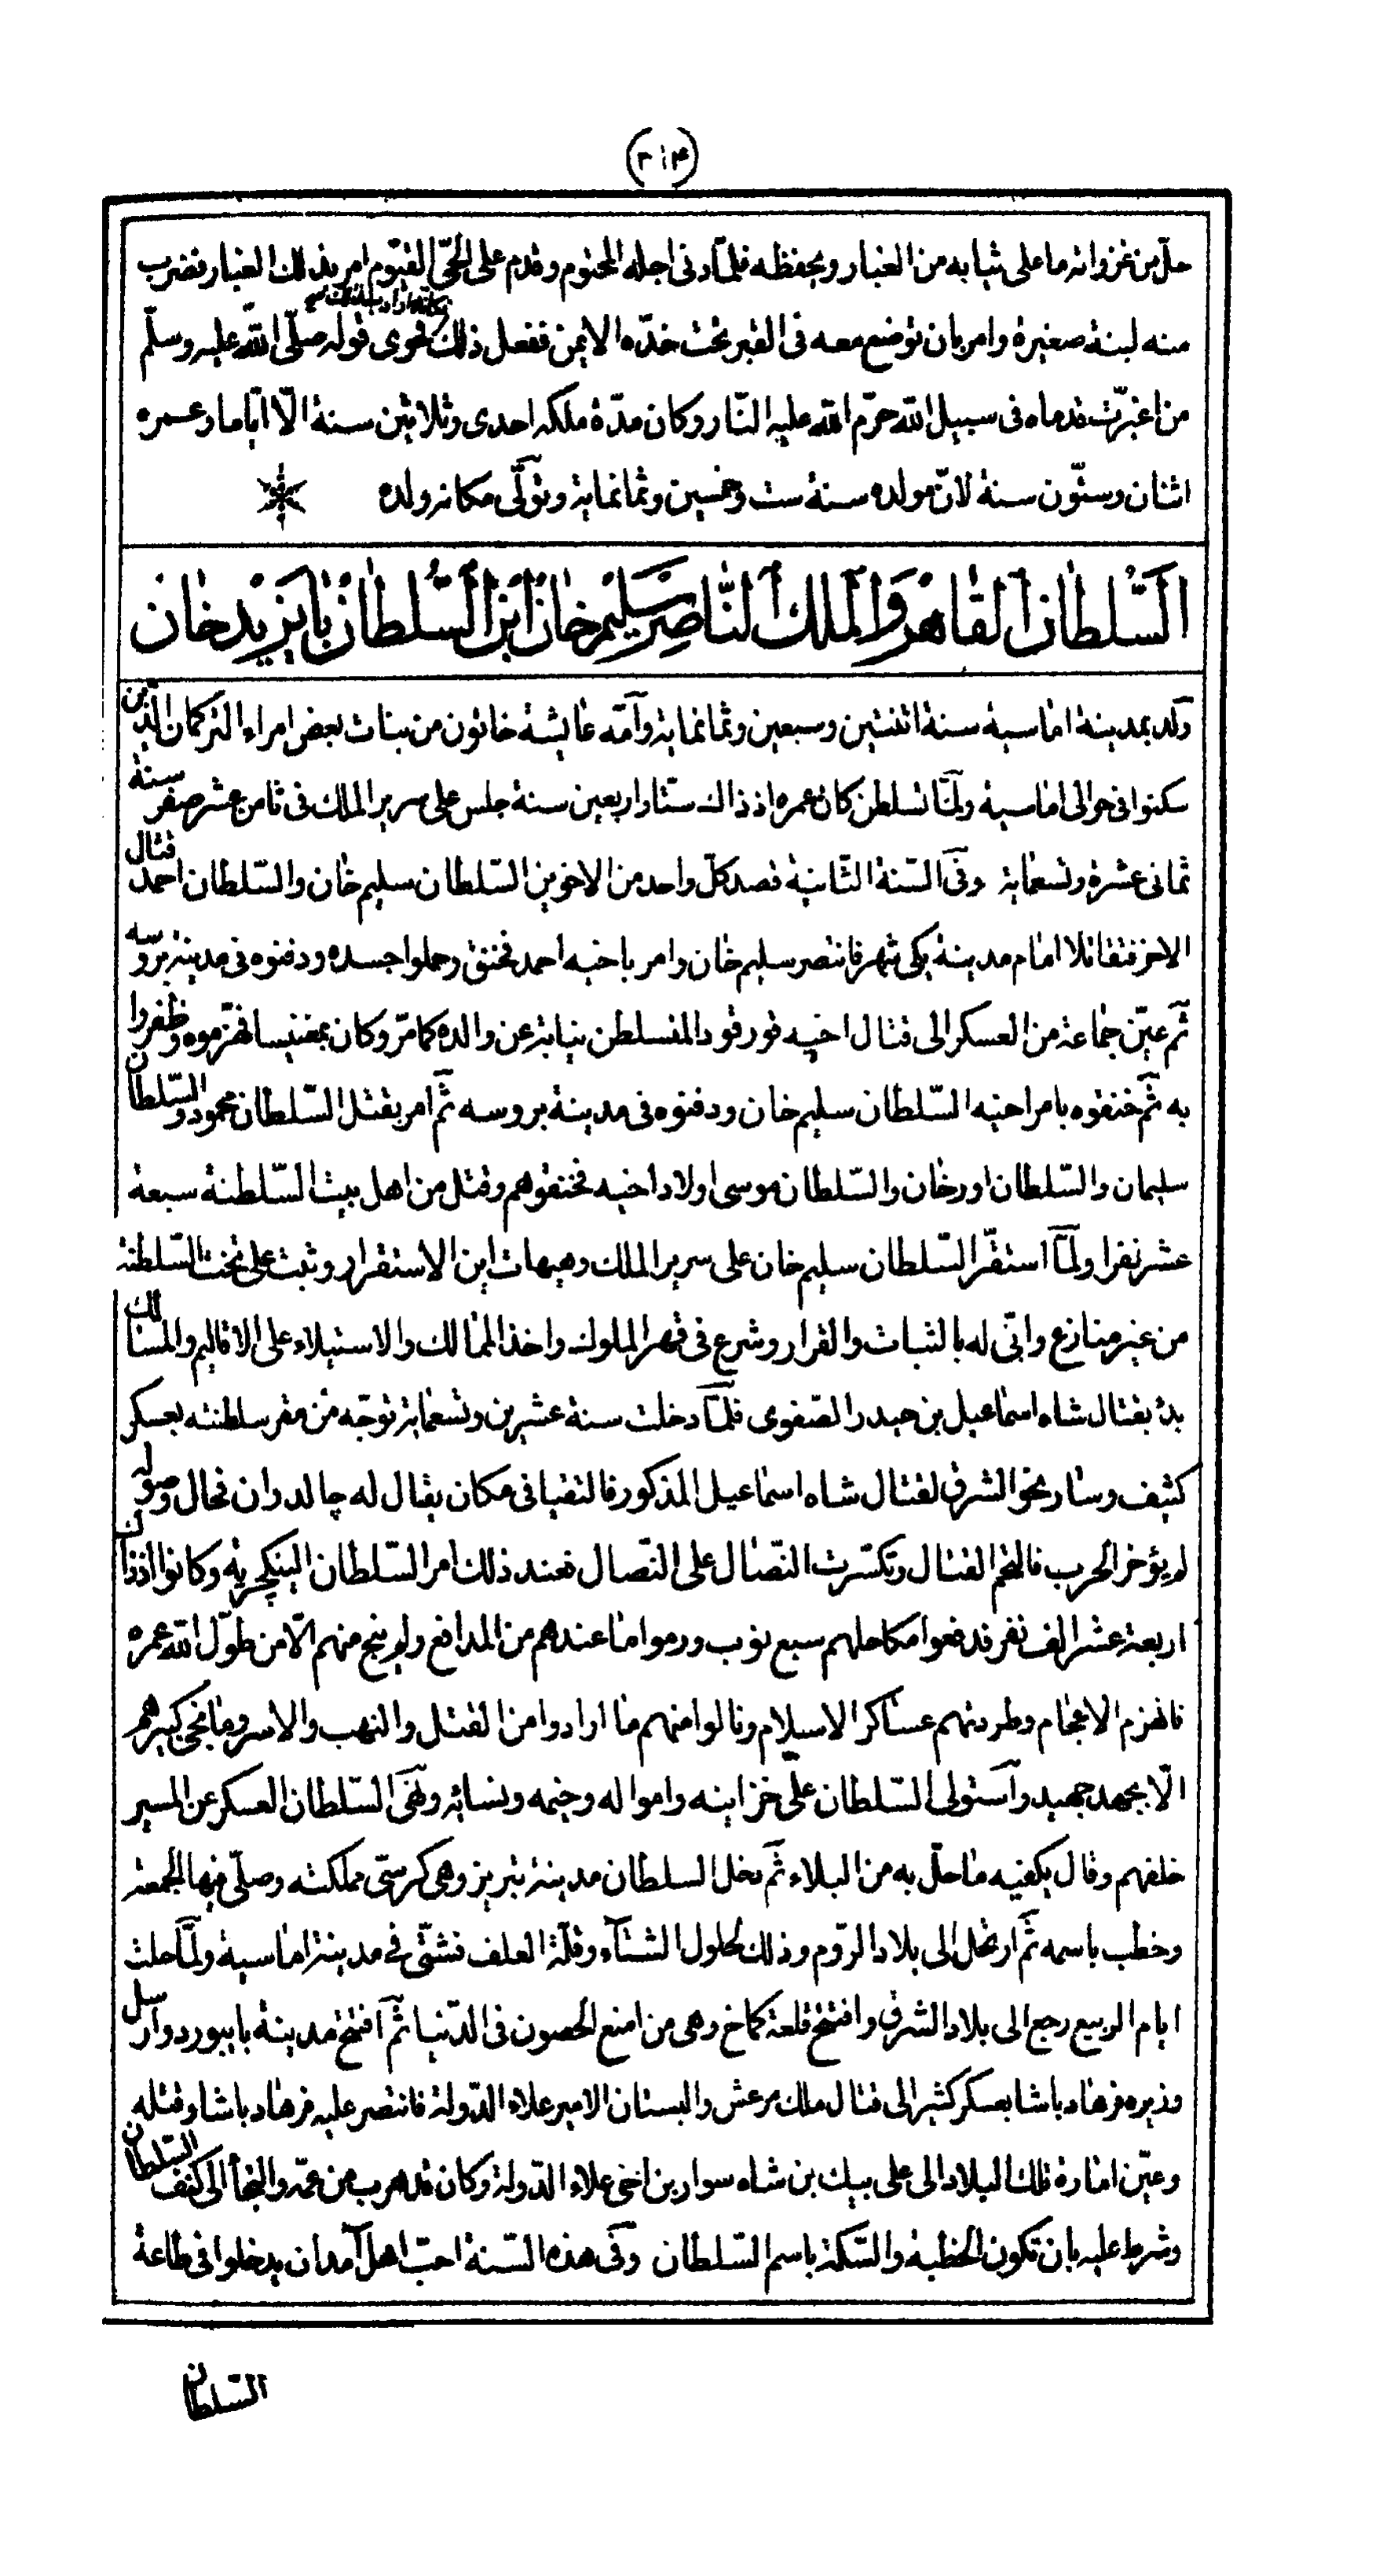 (٣١٤)
حلّ من غزواته ما على ثيابه من الغبار ويحفظه فلمّا دنى اجله المحتوم وقدم على الحيّ القيّوم امر بذلك الغبار فضرب
منه لبنة صغيرة وامر بان توضع معه فى القبر تحت خدّه الايمن ففعل ذلك فكانّه اراد بذلك فحوى قوله صلّى الله عليه وسلّم
من اغبرّت قدماه فى سبيل الله حرّم الله عليه النّار وكان مدّة ملكه احدى وثلاثين سنة الّا ايّاما وعمره
اثنان وستّون سنة لانّ مولده سنة ست وخمسين وثمانماية وتولّى مكانه ولده
السّلطان القاهر والملك النّاصر سليم خان ابن السّلطان بايزيد خان
ولد بمدينة اماسية سنة اثنتين وسبعين وثمانماية وامّه عايشة خاتون من بنات بعض امراء التركمان الذين
سكنوا فى حوالى اماسية ولمّا تسلطن كان عمره اذ ذاك ستّا واربعين سنة جلس على سرير الملك فى ثامن عشر صفر سنة
ثمانى عشرة وتسعماية وفى السّنة الثّانية قصد كلّ واحد من الاخوين السّلطان سليم خان والسّلطان احمد قتال
الاخر فتقاتلا امام مدينة يكى شهر فانتصر سليم خان وامر باخيه احمد فخنق وحملوا جسده ودفنوه فى مدينة بروسه
ثمّ عيّن جماعة من العسكر الى قتال اخيه قورقود المتسلطن بنيابة عن والده كما مرّ وكان بمغنيسا فهزموه وظفروا
به ثمّ خنقوه بامر اخيه السّلطان سليم خان ودفنوه فى مدينة بروسه ثمّ امر بقتل السّلطان محمود والسّلطان
سليمان والسّلطان اورخان والسّلطان موسى اولاد اخيه فخنقوهم وقتل من اهل بيت السّلطنة سبعة
عشر نفرا ولمّا استقّر السّلطان سليم خان على سرير الملك وهيهات اين الاستقرار وثبت على تخت السّلطنة
من غير منازع وانّى له بالثبات والقرار وشرع فى قهر الملوك واخذ الممالك والاستيلاء على الاقاليم والمسالك
بدئ بقتال شاه اسماعيل بن حيدر الصّفوى فلمّا دخلت سنة عشرين وتسعماية توجّه من مقر سلطنته بعسكر
كثيف وسار نحو الشرق لقتال شاه اسماعيل المذكور فالتقيا فى مكان يقال له چالدران فحال وصوله
لم يؤخر الحرب فالتحم القتال وتكسّرت النّصال على النّصال فعند ذلك امر السّلطان الينكچريه وكانوا اذ ذاك
اربعة عشر الف نفر فدفعوا مكاحلهم سبع نوب ورموا ما عندهم من المدافع ولم ينج منهم الّا من طوّل الله عمره
فانهزم الاعجام وطردتهم عساكر الاسلام ونالوا منهم ما ارادوا من القتل والنهب والاسر وما نجى كبيرهم
الّا بجهد جهيد واستولى السّلطان على خزاينه وامواله وخيمه ونسائه ونهى السّلطان العسكر عن المسير
خلفهم وقال يكفيه ما حلّ به من البلاء ثمّ دخل السلطان مدينة تبريز وهى كرسىّ مملكته وصلّى فيها الجمعة
وخطب باسمه ثمّ ارتحل الى بلاد الرّوم وذلك لحلول الشتآء وقلّة العلف فشتّى فى مدينة اماسية ولمّا حلت
ايام الربيع رجع الى بلاد الشرق وافتتح قلعة كماخ وهى من امنع الحصون فى الدّنيا ثمّ افتتح مدينة بايبورد وارسل
وزيره فرهاد باشا بعسكر كثير الى قتال ملك مرعش والبستان الامير علاء الدّولة فانتصر عليه فرهاد باشا وقتله
وعيّن امارة تلك البلاد الى على بيك بن شاه سوار بن اخى علاء الدّولة وكان قد هرب من عمّه والتجأ الى كنف السّلطان
وشرط عليه بان تكون الخطبة والسّكة باسم السّلطان وفى هذه السّنة احبّ اهل آمد ان يدخلوا فى طاعة
السّلطان